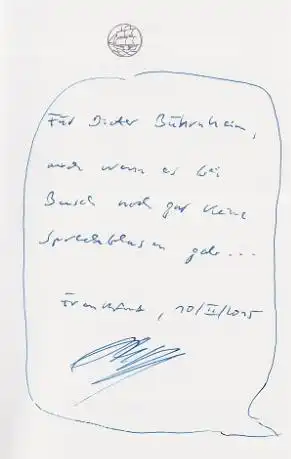 Für Dieter Bührnheim,
auch wenn es bei
Busch noch gar keine
Sprechblasen gab...
Frankfurt, 10/II/2015